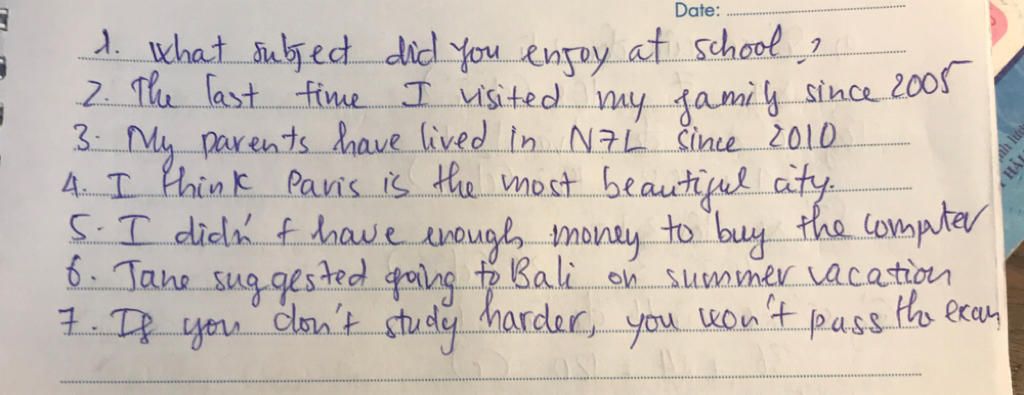 Date:
1. What subject did you enjoy at school?
2. The last time I visited my family since 2005
3. My parents have lived in since 2010
4. I think Paris is the most beautiful city.
5. I didn't have enough money to buy the computer
6. Jane suggested going to Bali on summer vacation
7. If you don't study harder, you won't pass the exam